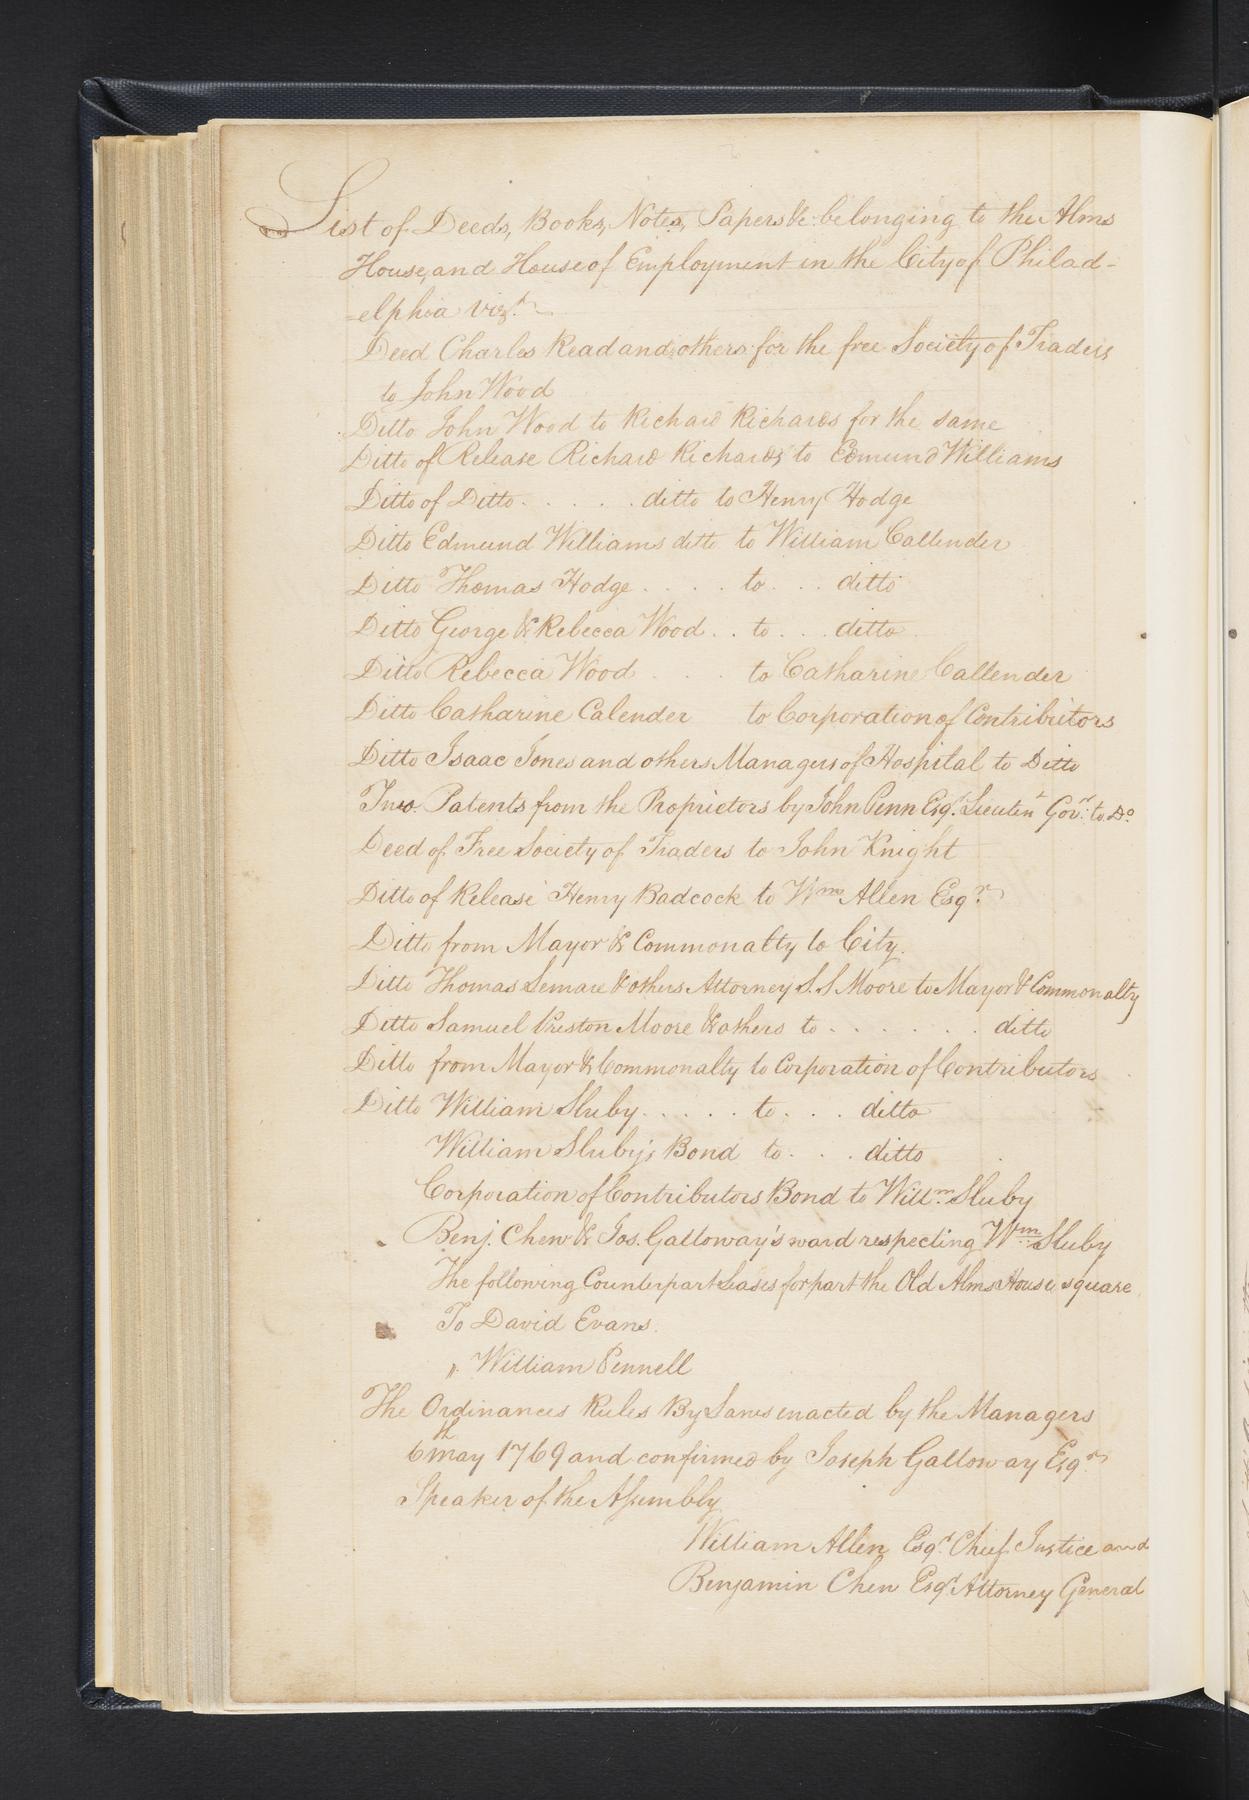 List of Deeds, Books, Notes, Papers &c. belonging to the Alms
House, and House of Employment in the City of Philad-
-elphia vizt.
Deed Charles Read and others for the free Society of Traders
to John Wood
Ditto John Wood to Richard Richards for the same
Ditto of Release Richard Richards to Edmund Williams
Ditto of Ditto . . . . . ditto to Henry Hodge
Ditto Edmund Williams ditto to William Callender
Ditto Thomas Hodge . . . . to . . . ditto
Ditto George & Rebecca Wood . . to . . . ditto
Ditto Rebecca Wood . . . to Catharine Callender
Ditto Catharine Calender to Corporation of Contributors
Ditto Isaac Jones and others Managers of Hospital to Ditto
Two Patents from the Proprietors by John Penn Esqr. Lieutent Govr. to Do.
Deed of Free Society of Traders to John Knight
Ditto of Release Henry Badcock to Wm Allen Esqr.
Ditto from Mayor & Commonalty to City.
Ditto Thomas Lemare & others Attorney S. S. Moore to Mayor & Commonalty
Ditto Samuel Preston Moore & others to . . . . . . . ditto
Ditto from Mayor & Commonalty to Corporation of Contributors
Ditto William Sluby . . . . . to . . . ditto
William Sluby's Bond to . . . ditto
Corporation of Contributors Bond to Willm. Sluby
Benj. Chew & Jos. Galloway's ward respecting Wm. Sluby
The following Counterpart Leases for part the Old Alms House square
To David Evans.
" William Pennell
The Ordinances Rules By Laws enacted by the Managers
6th may 1769 and confirmed by Joseph Galloway Esqr.
Speaker of the Assembly
William Allen Esqr. Chief Justice and
Benjamin Chew Esqr. Attorney General